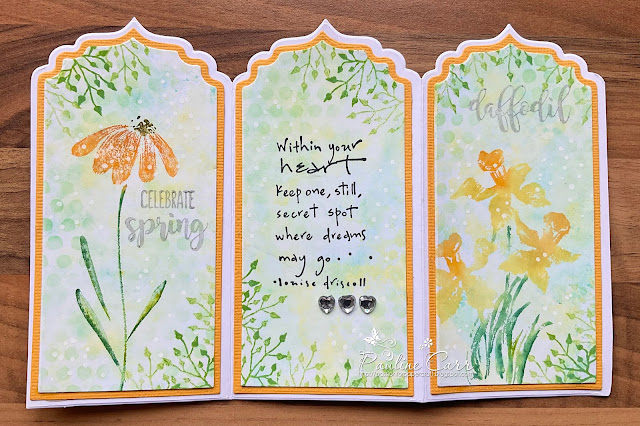 CELEBRATE
spring
Within your
heart
Keep one, still,
secret spot
where dreams
may go...
•louise driscoll
daffodil
Pauline Carr